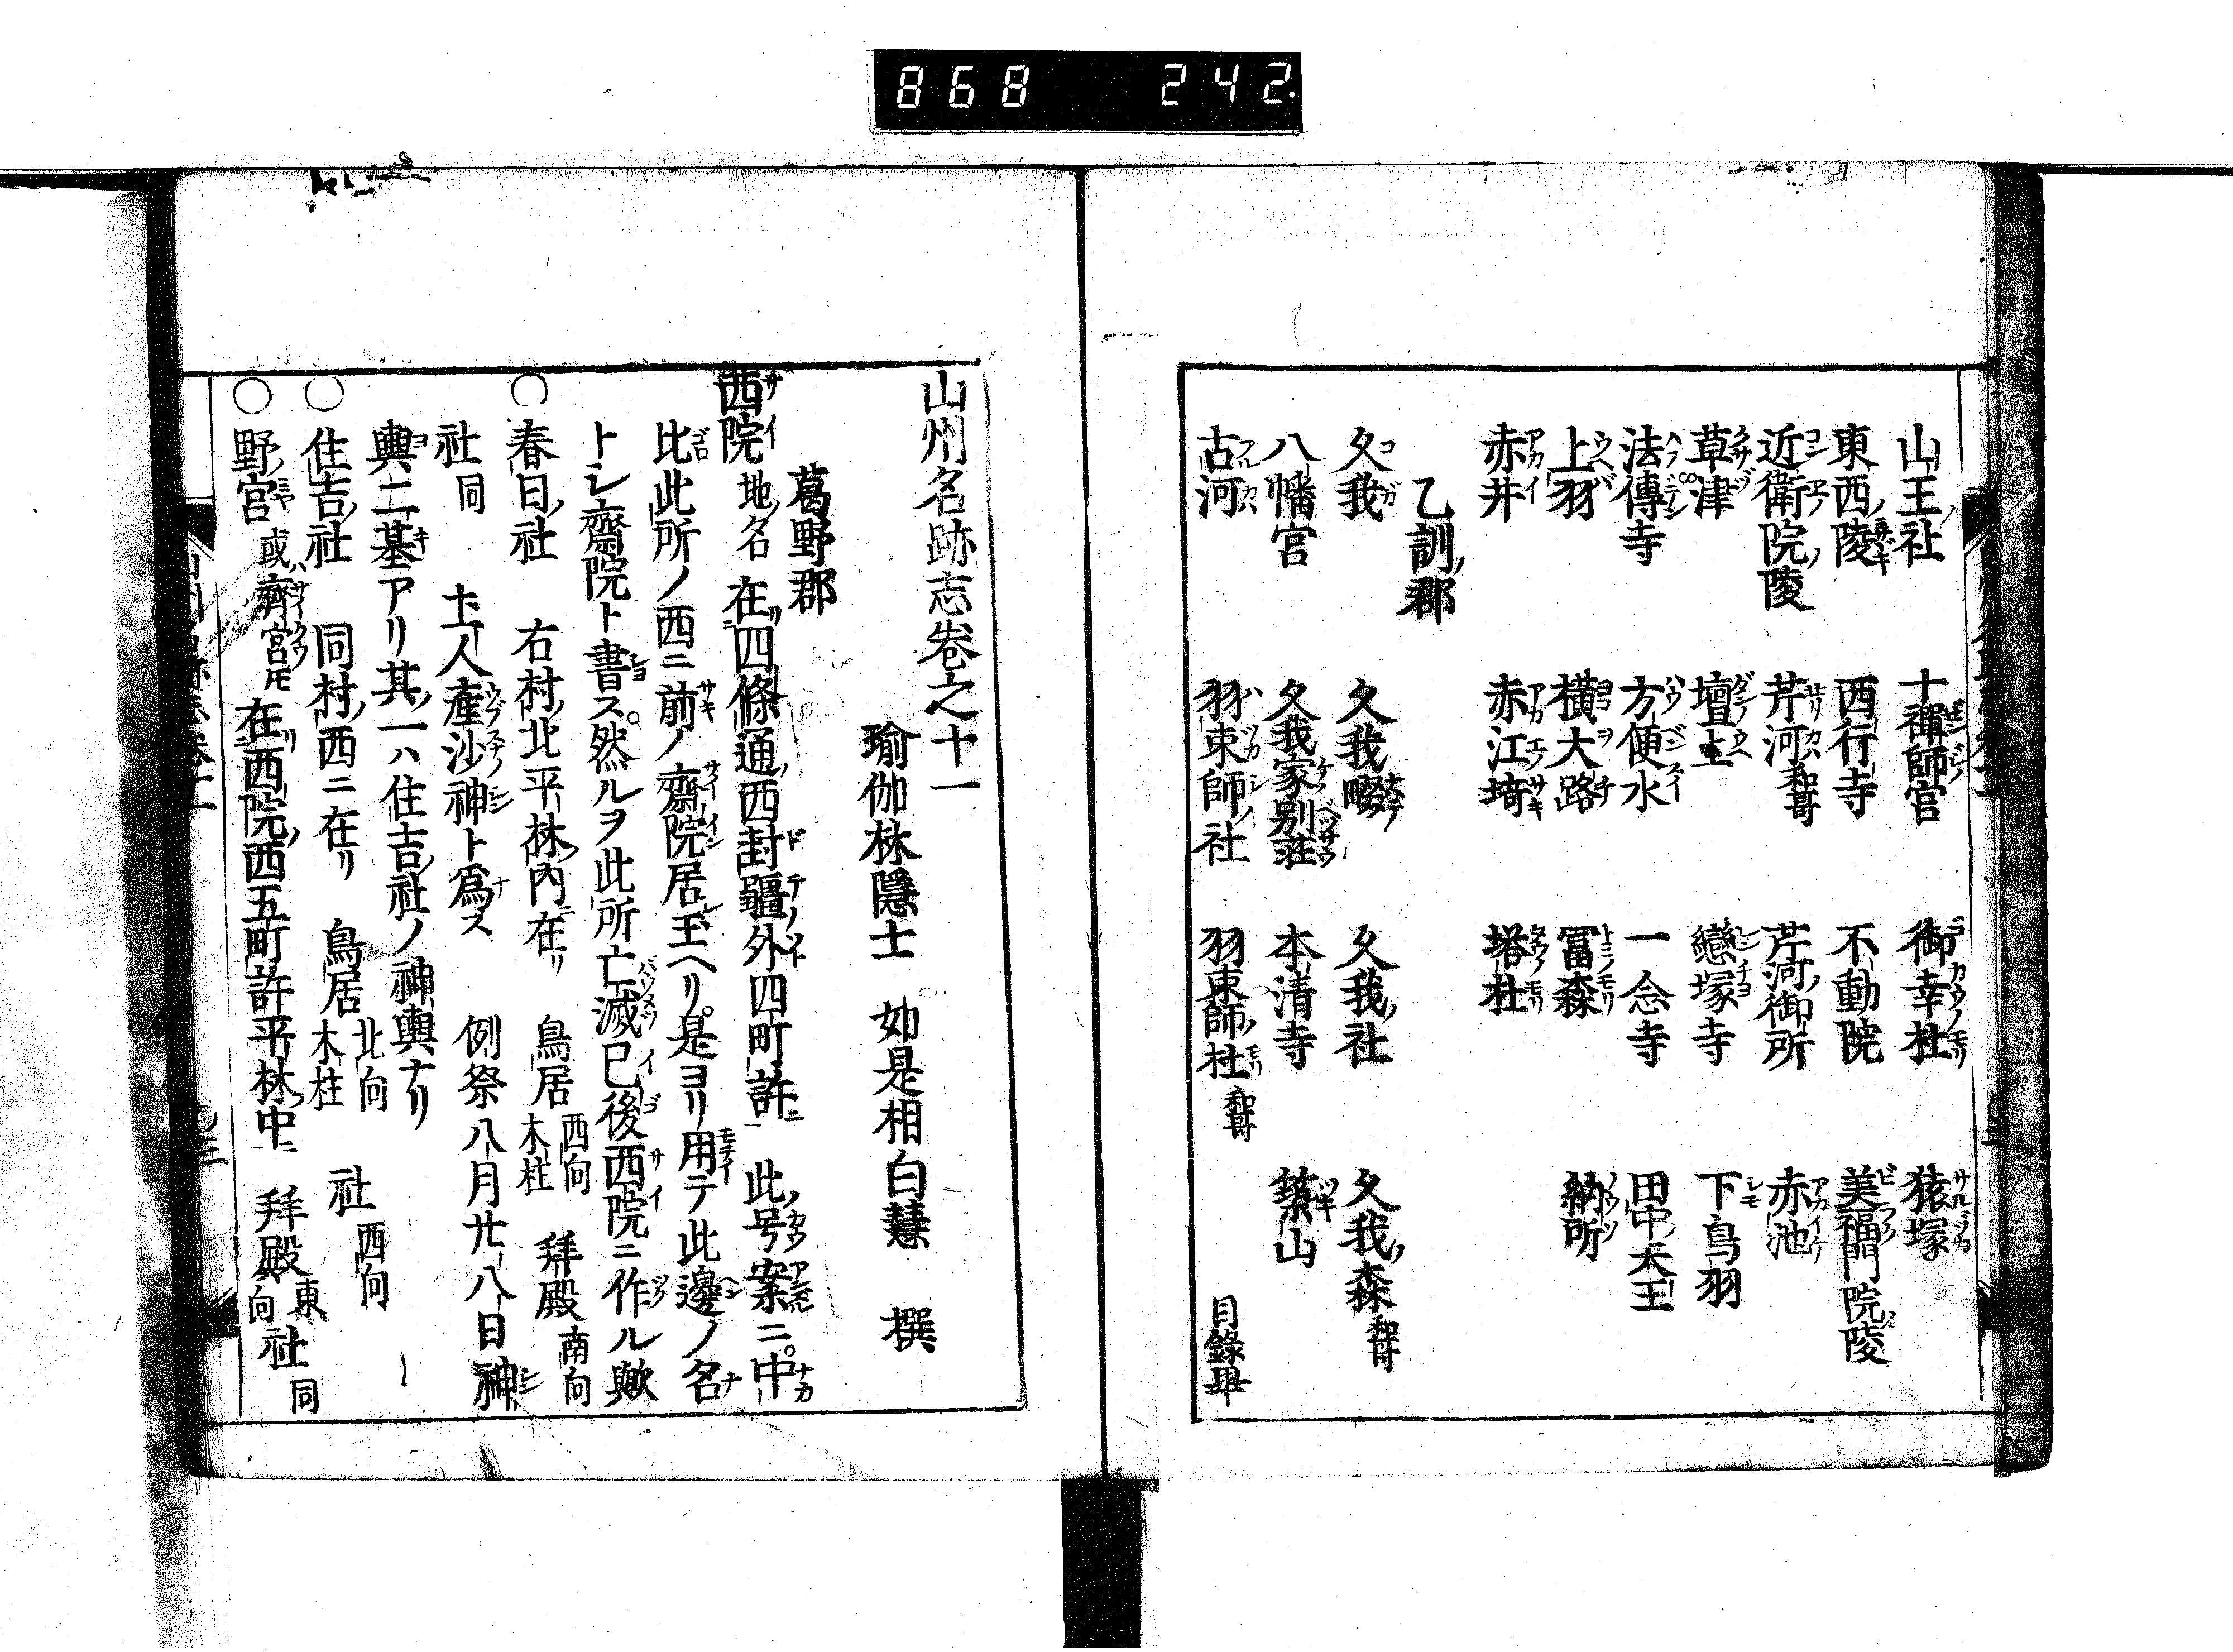 868 242
山王社 十禪師宮 御幸杜 猿塚
東西陵 西行寺 不動院 美福門院陵
近衛院陵 芹河和哥 芹河御所 赤池
草津 壇上 戀塚寺 下鳥羽
法傳寺 方便水 一念寺 田中天王
上羽 横大路 冨森 納所
赤井 赤江埼 塔杜
乙訓郡
久我 久我畷 久我社 久我森和哥
八幡宮 久我家別莊 本清寺 築山
古河 羽束師社 羽束師杜和哥
目録畢
山州名跡志巻之十一
瑜伽林隱士 如是相白慧 撰
葛野郡
西院地名 在四條通西封疆外四町許 此号案ニ中
比此所ノ西ニ前ノ齋院居玉ヘリ是ヨリ用テ此邊ノ名
トシ齋院ト書ス然ルヲ此所亡滅已後西院ニ作ル歟
○春日社 右村北平林內在リ 鳥居西向木柱 拜殿南向
社同 土人產沙神ト爲ス 例祭八月廿八日神
輿二基アリ其一ハ住吉社ノ神輿ナリ
○住吉社 同村西ニ在リ 鳥居北向木柱 社西向
○野宮或齋宮 在西院西五町許平林中 拜殿東向 社同